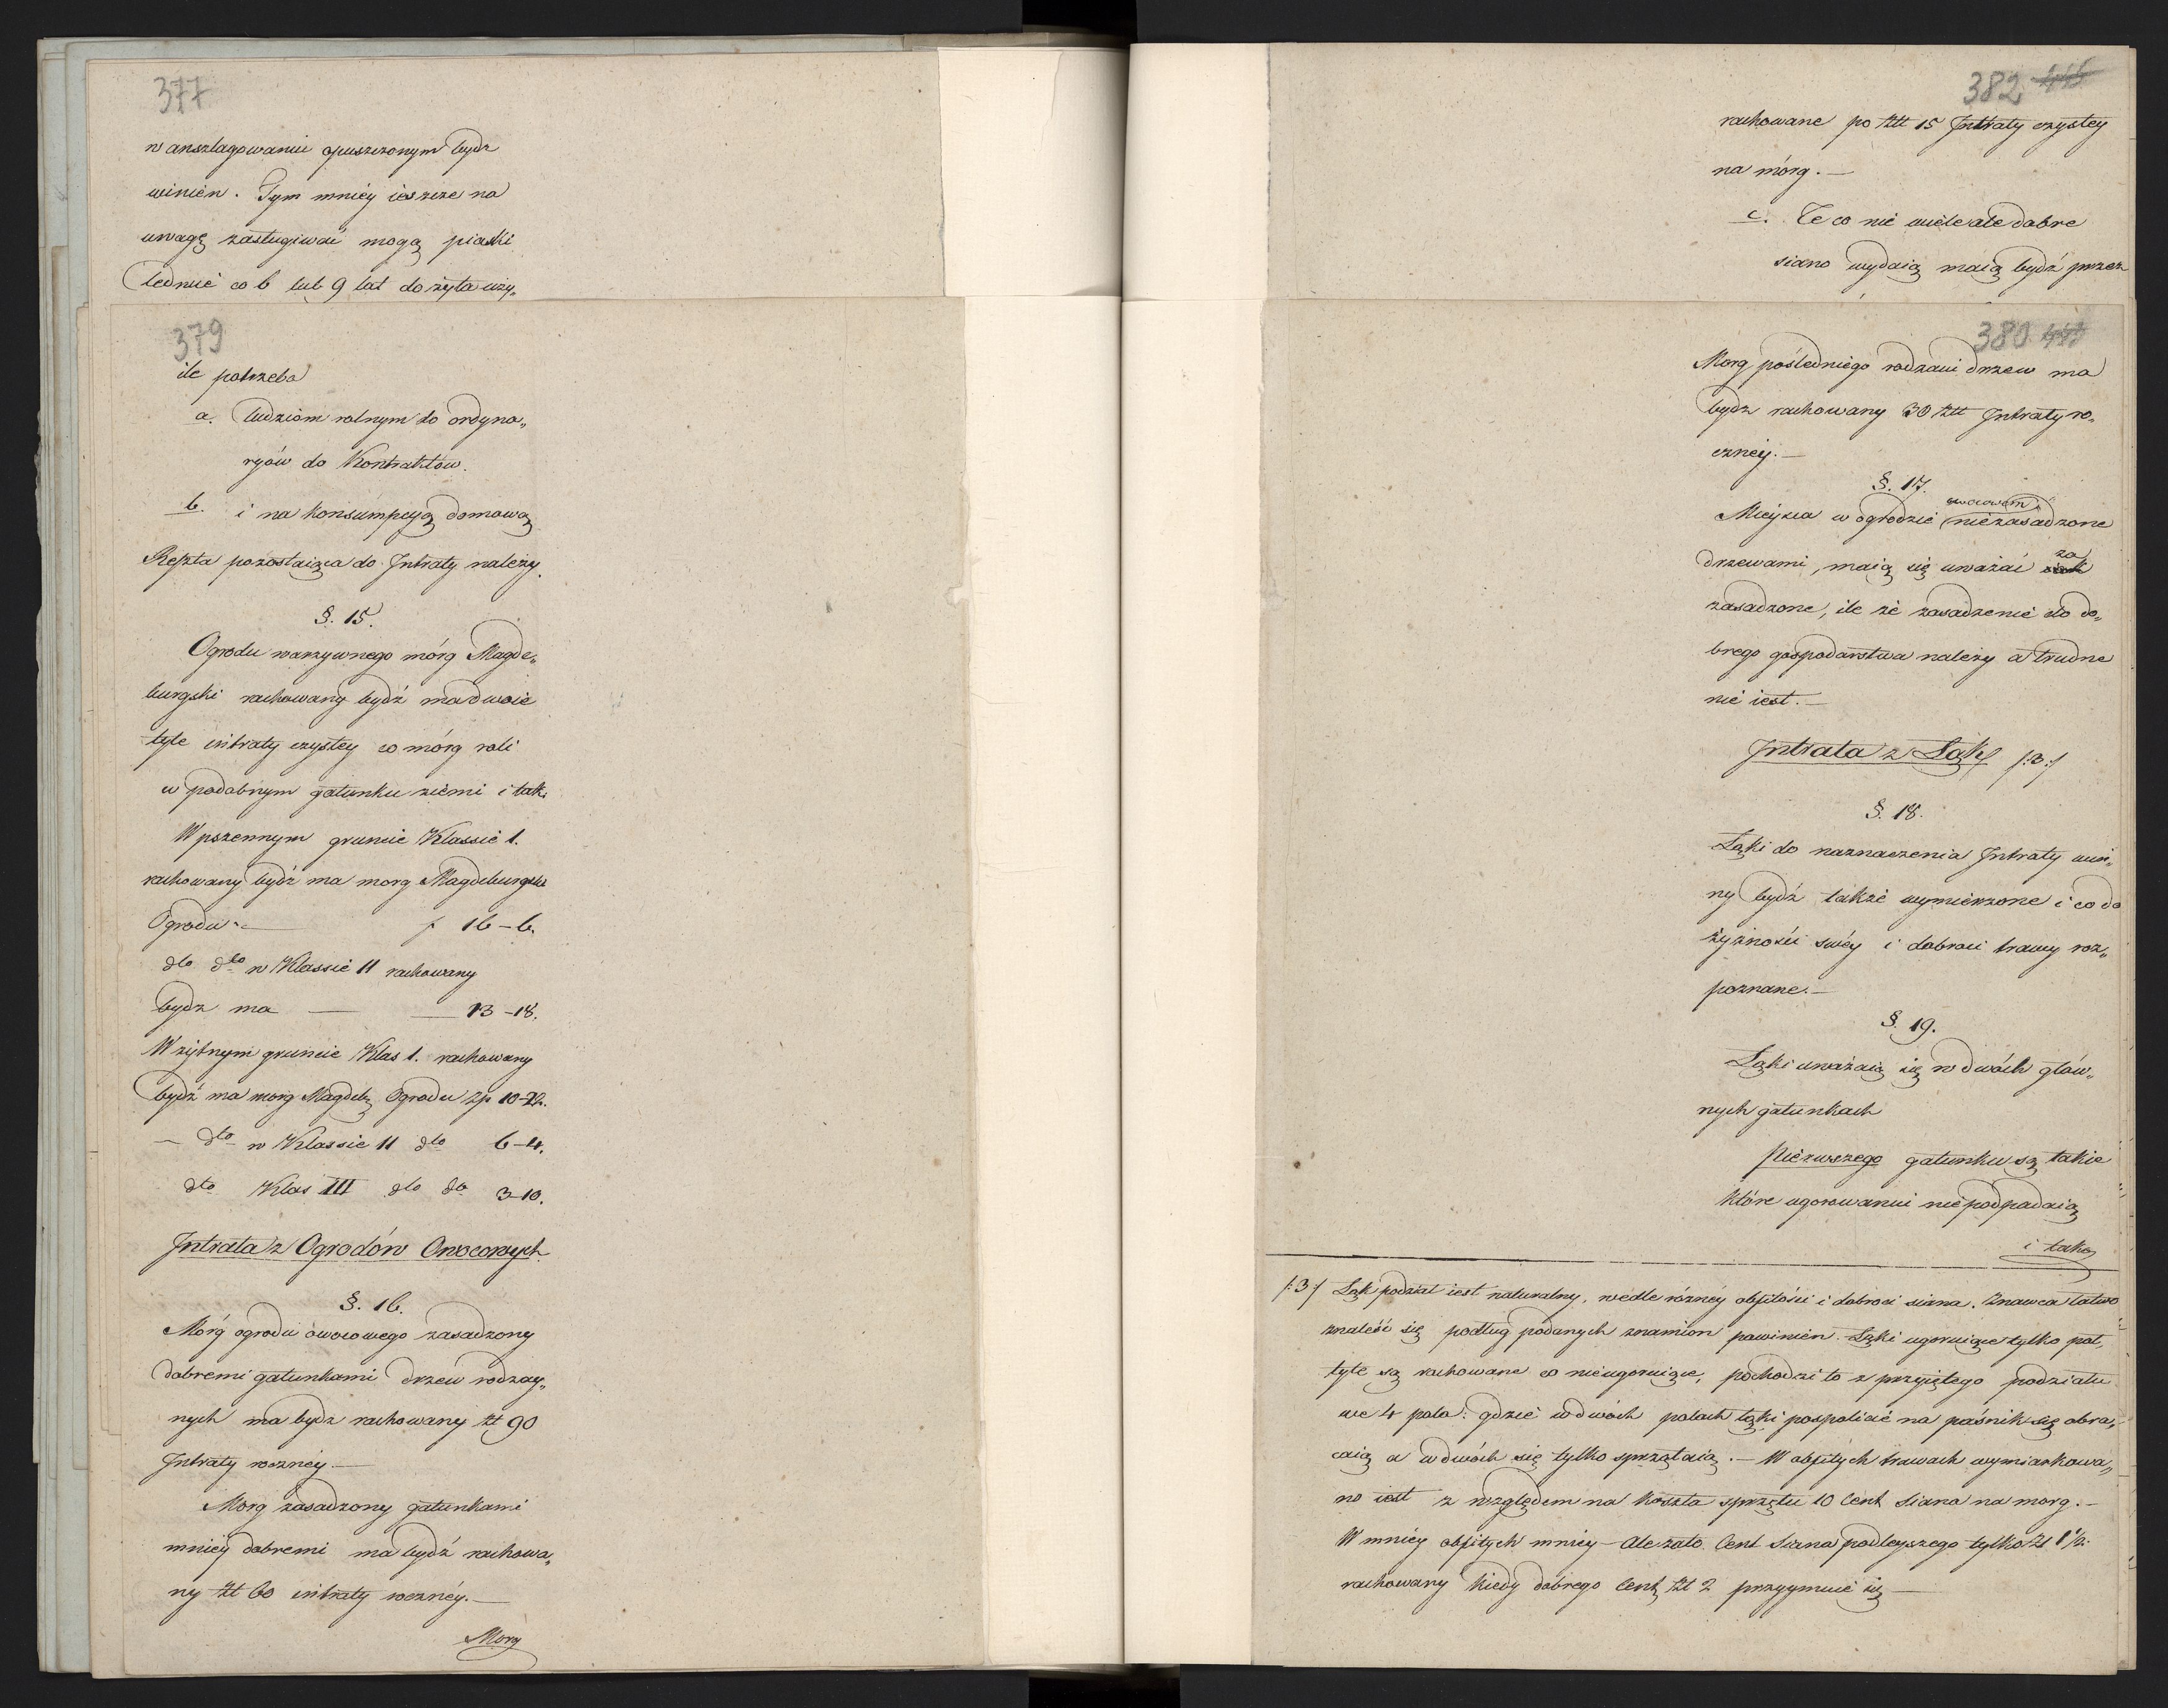 377
w anszlagowaniu opuszczonym bydz
winien. Tym mniey ieszcze na
uwagę zasługiwać mogą piaski
lednie co 6 lub 9 lat do żyta uży„
379
ile potrzeba
a. ludziom rolnym to ordyna„
ryów do Kontraktów.
b. i na konsumpcyą domową
Reszta pozostaiąca do Intraty należy.
§. 15.
Ogrodu warzywnego mórg Magde„
burgski rachowany bydź ma dwoie
tyle intraty czystey co mórg roli
w podobnym gatunku ziemi i tak:
W pszennym gruncie Klassie 1.
rachowany bydź ma morg Magdeburgski
Ogrodu — f 16 – 6.
dto dto w Klassie II rachowany
bydz ma — — 13 – 18.
W żytnym gruncie Klas 1. rachowany
bydź ma morg Magdeb. Ogrodu Zp 10–22.
— dto w Klassie II dto 6–4.
dto Klas III dto do 3–10.
Intrata z Ogrodów Owocowych.
§. 16.
Mórg ogrodu owocowego zasadzony
dobremi gatunkami drzew rodzay„
nych ma bydz rachowany Zt 90
Intraty roczney. —
Morg zasadzony gatunkami
mniey dobremi ma bydź rachowa„
ny Zt 60 intraty roczney. —
Morg
382 446
rachowane po Ztt 15 Intraty czystey
na mórg. —
c. Te co nie wiele ale dobre
siano wydaią maią bydź przez
380
Morg pośledniego rodzaui drzew ma
bydz rachowany 30 Ztt Intraty ro„
czney. —
§. 17.
owocowem
Mieysca w ogrodzie niezasadzone
drzewami, maią się uważać iak za
zasadzone, ile że zasadzenie do do„
brego gospodarstwa należy a trudne
nie iest. —
Intrata z Łąk /:3:/
§. 18.
Łąki do naznaczenia Intraty win„
ny bydź także wymierzone i co do
żyzności swéy i dobroci trawy roz„
poznane. —
§. 19.
Łąki uważaią się w dwóch głów„
nych gatunkach
Pierwszego gatunku są takie
które ugorowaniu niepodpadaią
i takᵉ
/:3:/ Łąk podział iest naturalny, wedle różnéy obfitości i dobroci siana. Znawca łatwo
znaleść się podług podanych znamion powinien. Łąki ugoruiące tylko pół„
tyle są rachowane co nieugoruiące, pochodzi to z przyiętego podziału
we 4 pola: gdzie w dwóch polach łąki pospolicie na paśnik się obra„
caią a w dwóch się tylko sprzątaią. — W obfitych trawach wymiarkowa„
no iest z względem na koszta sprzętu 10 Cent Siana na morg. —
W mniéy obfitych mniéy – Ale zato Cent Siana podleyszego tylko Zł 1 1/2.
rachowany kiedy dobrego Cent. Zł 2 przyymuie się —